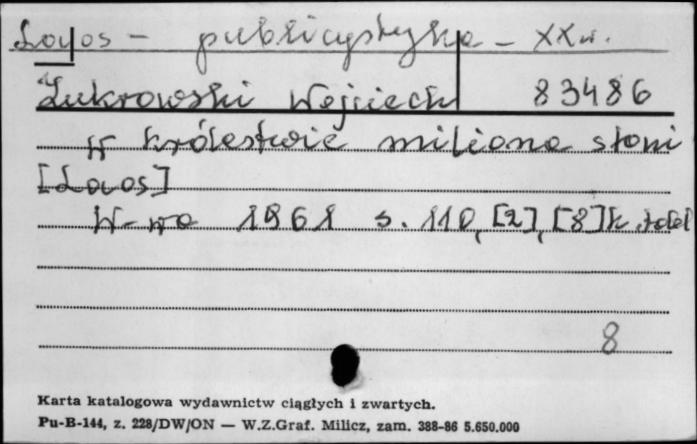 Laos - publicystyka - XX w.
Żukrowski Wojciech 83486
W królestwie miliona słoni
[Laos]
W-wa 1961 s. 110, [2], [8] k. tabl
8
Karta katalogowa wydawnictw ciągłych i zwartych.
Pu-B-144, z. 228/DW/ON — W.Z.Graf. Milicz, zam. 388-86 5.650.000